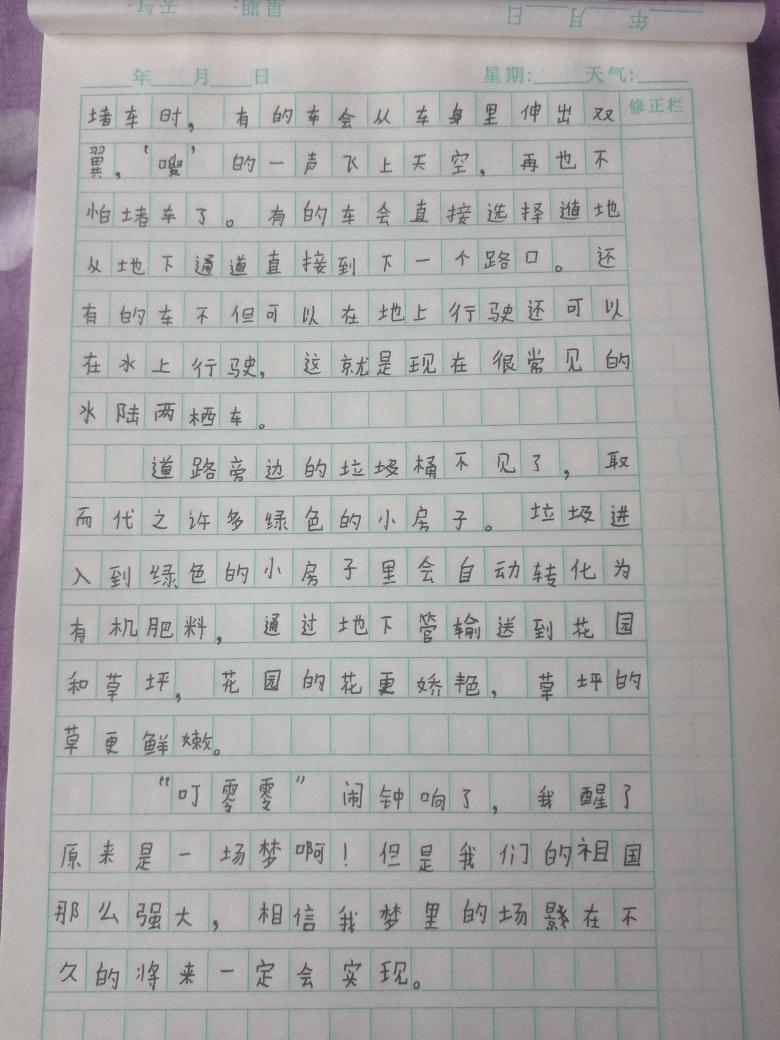 年 月 日 星期: 天气:
年 月 日 星期: 天气:
修正栏
堵车时，有的车会从车身里伸出双
翼，‘嗖’的一声飞上天空，再也不
怕堵车了。有的车会直接选择遁地
从地下通道直接到下一个路口。还
有的车不但可以在地上行驶还可以
在水上行驶，这就是现在很常见的
水陆两栖车。
道路旁边的垃圾桶不见了，取
而代之许多绿色的小房子。垃圾进
入到绿色的小房子里会自动转化为
有机肥料，通过地下管输送到花园
和草坪，花园的花更娇艳，草坪的
草更鲜嫩。
“叮零零”闹钟响了，我醒了
原来是一场梦啊！但是我们的祖国
那么强大，相信我梦里的场影在不
久的将来一定会实现。